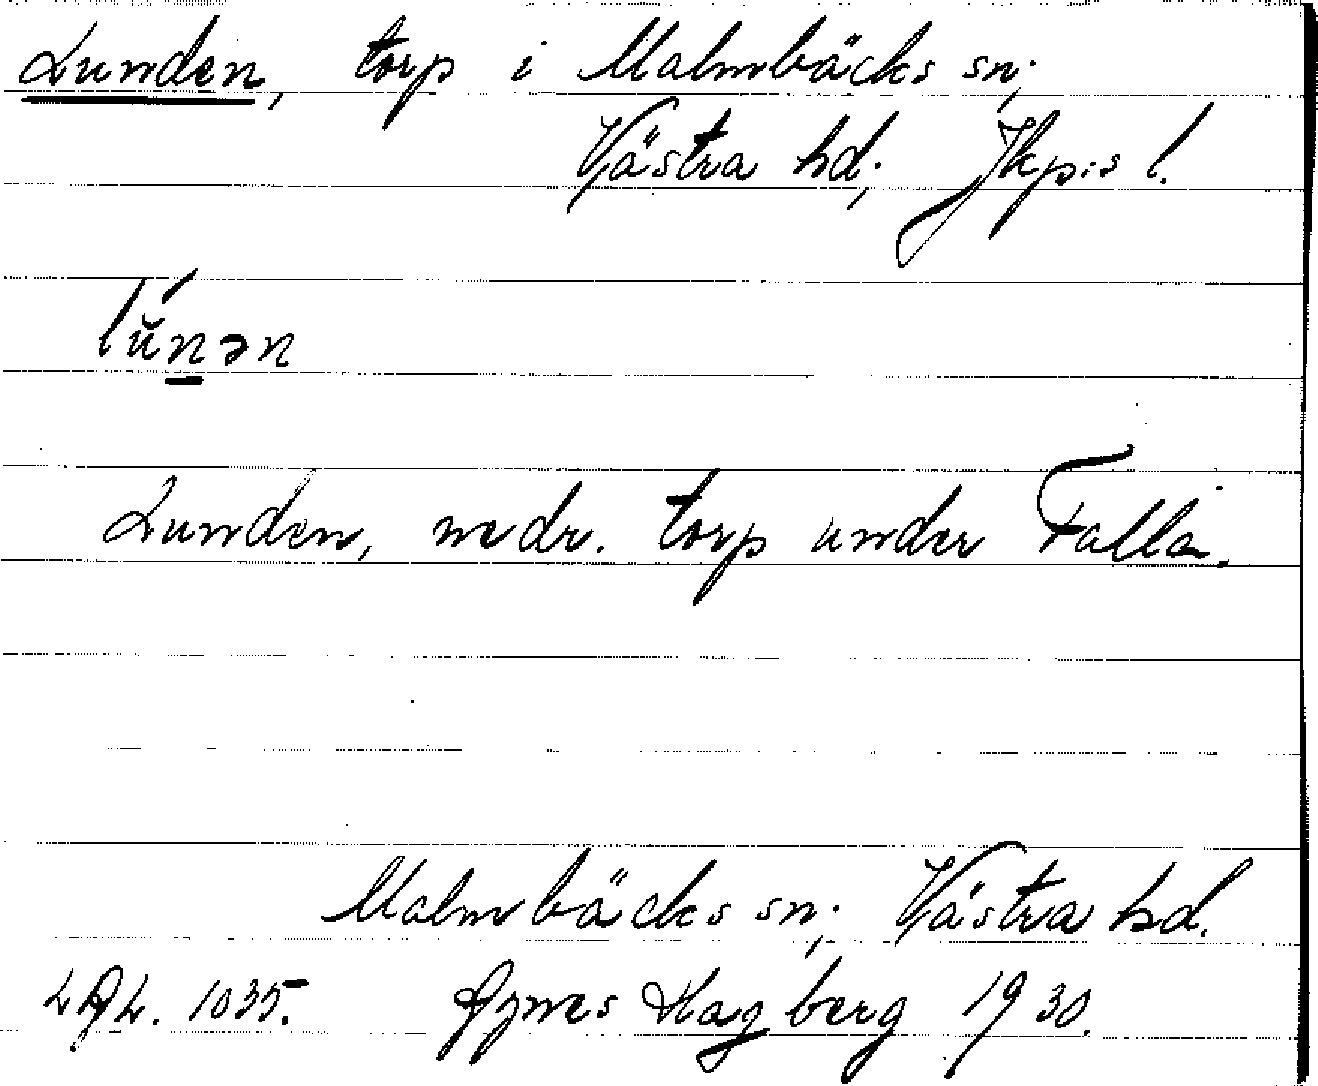 Lunden, torp i Malmbäcks sn;
Västra hd; Jkp:s l.
lŭ́nən
Lunden, nedr. torp under Falla.
Malmbäcks sn; Västra hd.
LAL. 1035. Agnes Hagberg 1930.